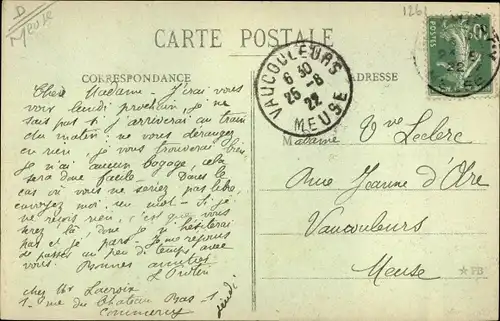 D
Meuse
1261
CARTE POSTALE
CORRESPONDANCE
ADRESSE
VAUCOULEURS
6 30
25-8
22
MEUSE
Chère Madame - J'irai vous
voir lundi prochain, je ne
sais pas si j'arriverai au train
du matin, ne vous dérangez
en rien je vous trouverai bien,
je n'ai aucun bagage, cela
sera donc facile - Dans le
cas où vous ne seriez pas libre,
envoyez moi un mot - Si je
ne reçois rien, c'est que vous
serez là, donc je n'hésiterai
pas et je pars - Je me réjouis
de passer un peu de temps avec
vous. Bonnes amitiés
chez Mr Lacroix
1 rue du Château Bas 1
Commercy
jeudi
Madame Vve Leclerc
Rue Jeanne d'Arc
Vaucouleurs
Meuse
★ PB